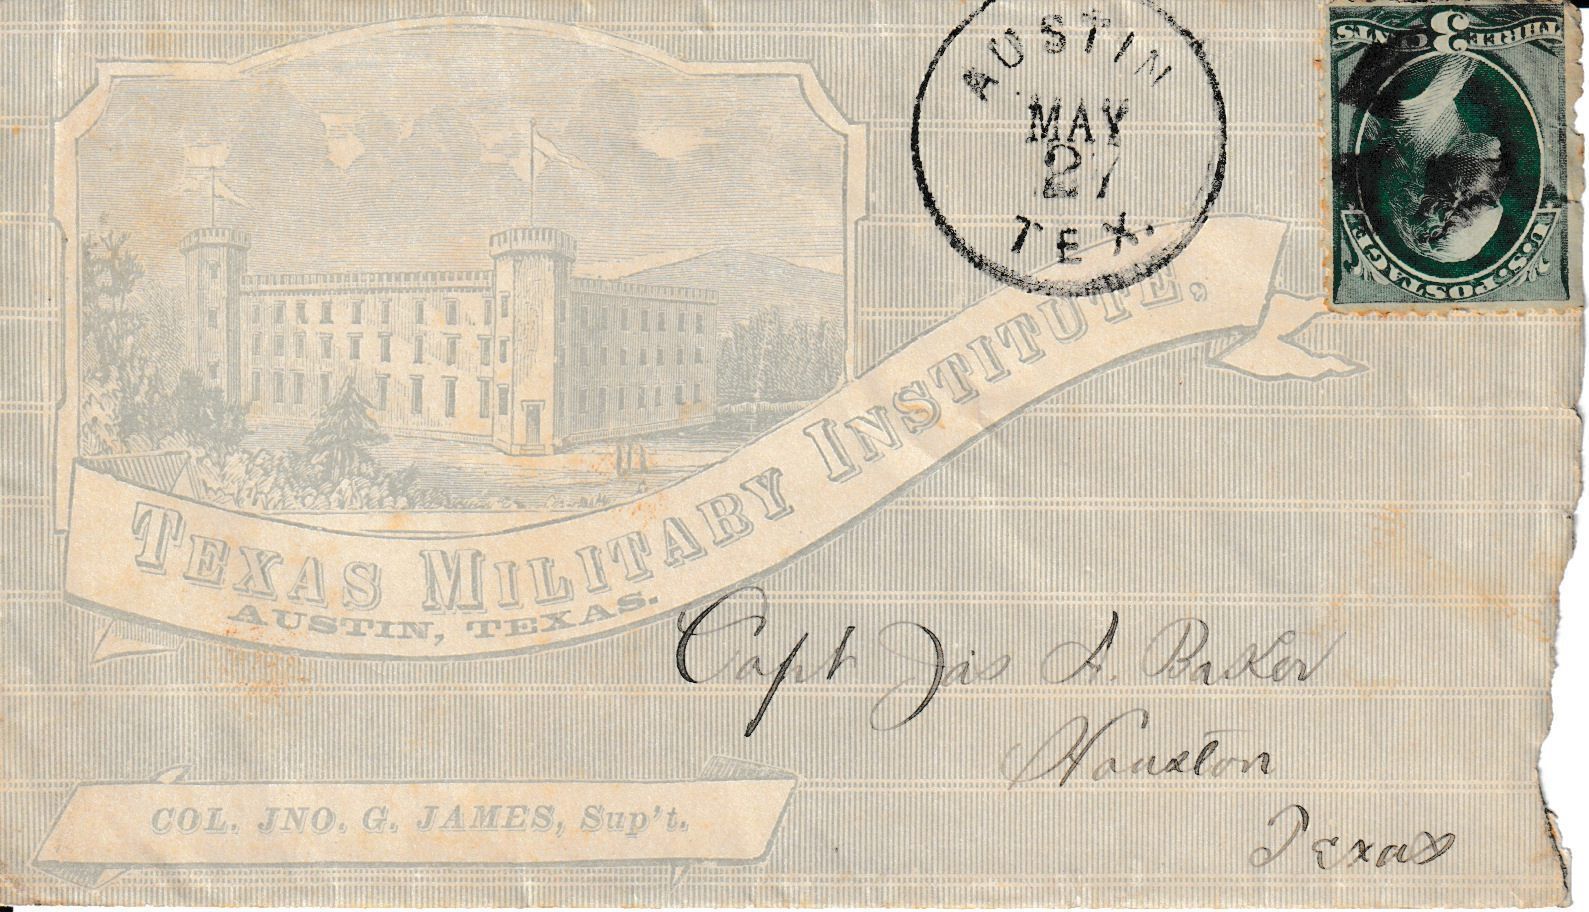 AUSTIN
MAY
27
TEX.
THREE 3 CENTS
U.S. POSTAGE
TEXAS MILITARY INSTITUTE,
AUSTIN, TEXAS.
Capt Jas A. Baker
Houston
Texas
COL. JNO. G. JAMES, Sup't.